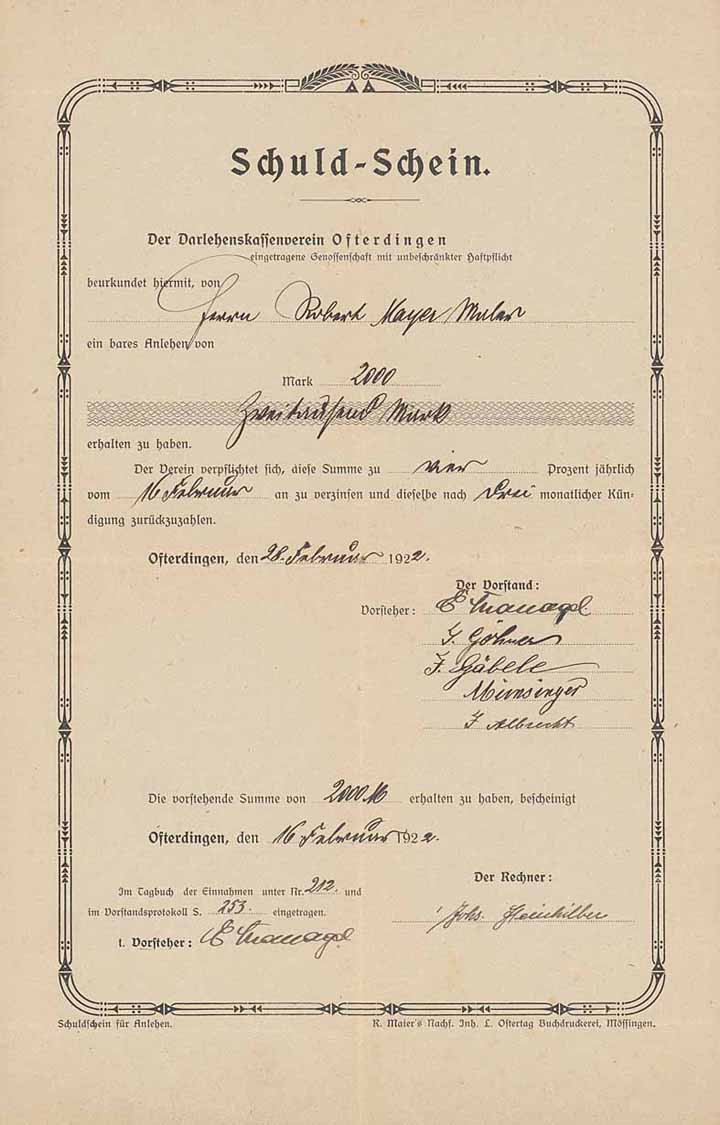 Schuld-Schein.
Der Darlehenskassenverein Ofterdingen
eingetragene Genossenschaft mit unbeschränkter Haftpflicht
beurkundet hiermit, von
Herrn Robert Mayer Maler
ein bares Anlehen von
Mark 2000
Zweitausend Mark
erhalten zu haben.
Der Verein verpflichtet sich, diese Summe zu vier Prozent jährlich
vom 16 Februar an zu verzinsen und dieselbe nach drei monatlicher Kün-
digung zurückzuzahlen.
Ofterdingen, den 28. Februar 1922.
Der Vorstand:
Vorsteher: E
J. Göhner
J. Gäbele
Münsinger
J Albrecht
Die vorstehende Summe von 2000 M erhalten zu haben, bescheinigt
Ofterdingen, den 16 Februar 1922.
Der Rechner:
Im Tagbuch der Einnahmen unter Nr. 212. und
im Vorstandsprotokoll S. 253. eingetragen.
Johs. Steinhilber
t. Vorsteher: E
Schuldschein für Anlehen.
R. Maier's Nachf. Inh. L. Ostertag Buchdruckerei, Mössingen.